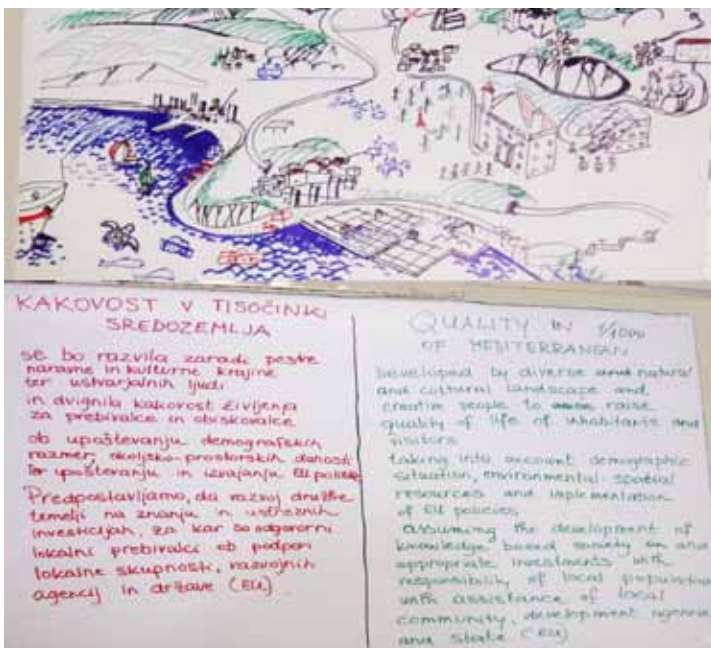 KAKOVOST V TISOČINKI
SREDOZEMLJA
se bo razvila zaradi pestre
naravne in kulturne krajine
ter ustvarjalnih ljudi
in dvignila kakovost življenja
za prebivalce in obiskovalce
ob upoštevanju demografskih
razmer, okoljsko-prostorskih danosti
ter upoštevanju in izvajanju EU politik
Predpostavljamo, da razvoj družbe
temelji na znanju in ustreznih
investicijah, za kar so odgovorni
lokalni prebivalci ob podpori
lokalne skupnosti, razvojnih
agencij in države (EU)
QUALITY IN 1/1000
OF MEDITERRANEAN
Developed by diverse natural
and cultural landscape and
creative people to raise
quality of life of inhabitants and
visitors
taking into account demographic
situation, environmental-spatial
resources and implementation
of EU policies
assuming the development of
knowledge based society on and
appropriate investments with
responsibility of local population
with assistance of local
community, development agencies
and state (EU)